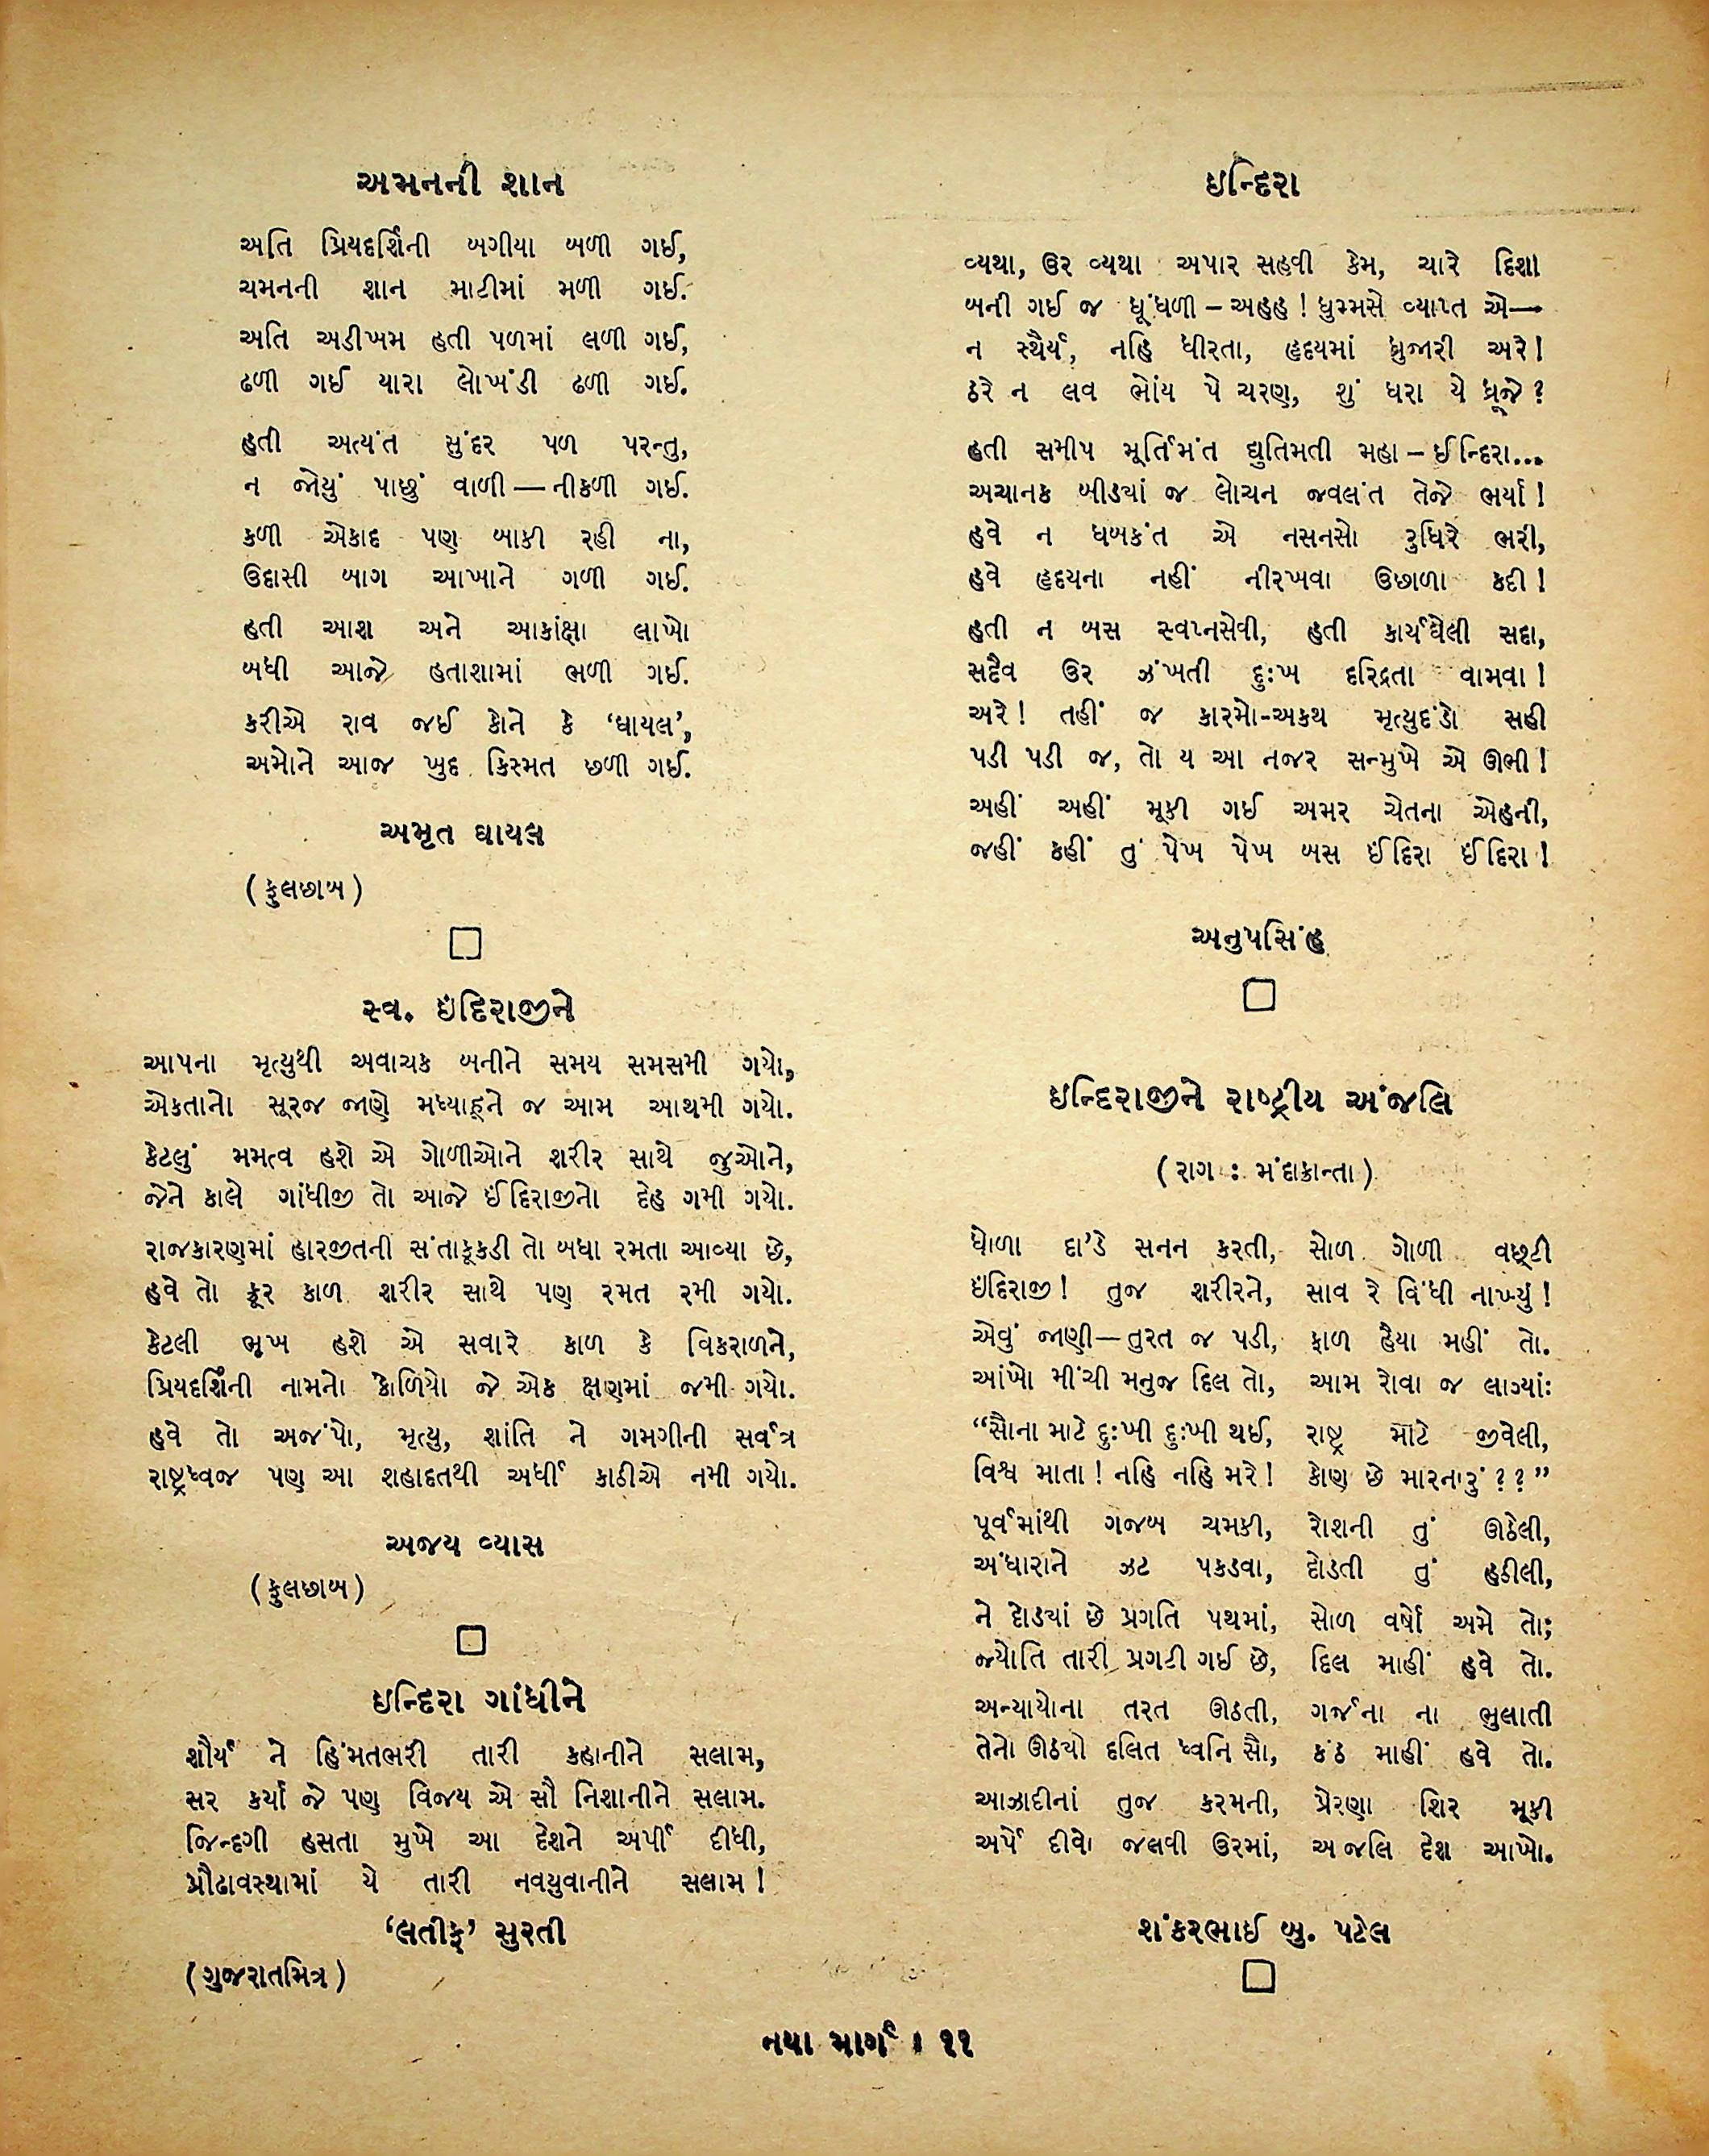 અમનની શાન
અતિ પ્રિયદર્શિની બગીયા બળી ગઈ,
ચમનની શાન માટીમાં મળી ગઈ.
અતિ અડીખમ હતી પળમાં લળી ગઈ,
ઢળી ગઈ યારા લોખંડી ઢળી ગઈ.
હતી અત્યંત સુંદર પળ પરન્તુ,
ન જોયું પાછું વાળી — નીકળી ગઈ.
કળી એકાદ પણ બાકી રહી ના,
ઉદાસી બાગ આખાને ગળી ગઈ.
હતી આશ અને આકાંક્ષા લાખો
બધી આજે હતાશામાં ભળી ગઈ.
કરીએ રાવ જઈ કોને કે ‘ઘાયલ’,
અમોને આજ ખુદ કિસ્મત છળી ગઈ.
અમૃત ઘાયલ
(ફુલછાબ)
સ્વ. ઇંદિરાજીને
આપના મૃત્યુથી અવાચક બનીને સમય સમસમી ગયો,
એકતાનો સૂરજ જાણે મધ્યાહ્ને જ આમ આથમી ગયો.
કેટલું મમત્વ હશે એ ગોળીઓને શરીર સાથે જુઓને,
જેને કાલે ગાંધીજી તો આજે ઈંદિરાજીનો દેહ ગમી ગયો.
રાજકારણમાં હારજીતની સંતાકૂકડી તો બધા રમતા આવ્યા છે,
હવે તો ક્રૂર કાળ શરીર સાથે પણ રમત રમી ગયો.
કેટલી ભૂખ હશે એ સવારે કાળ કે વિકરાળને,
પ્રિયદર્શિની નામનો કોળિયો જે એક ક્ષણમાં જમી ગયો.
હવે તો અજંપો, મૃત્યુ, શાંતિ ને ગમગીની સર્વત્ર
રાષ્ટ્રધ્વજ પણ આ શહાદતથી અર્ધી કાઠીએ નમી ગયો.
અજય વ્યાસ
(ફુલછાબ)
ઇન્દિરા ગાંધીને
શૌર્ય ને હિંમતભરી તારી કહાનીને સલામ,
સર કર્યા જે પણ વિજય એ સૌ નિશાનીને સલામ.
જિન્દગી હસતા મુખે આ દેશને અર્પી દીધી,
પ્રૌઢાવસ્થામાં યે તારી નવયુવાનીને સલામ !
‘લતીફ’ સુરતી
(ગુજરાતમિત્ર)
ઇન્દિરા
વ્યથા, ઉર વ્યથા અપાર સહવી કેમ, ચારે દિશા
બની ગઈ જ ધૂંધળી – અહહ ! ધુમ્મસે વ્યાપ્ત એ—
ન સ્થૈર્ય, નહિ ધીરતા, હૃદયમાં ધ્રુજારી અરે !
ઠરે ન લવ ભોંય પે ચરણ, શું ધરા યે ધ્રૂજે ?
હતી સમીપ મૂર્તિમંત દ્યુતિમતી મહા – ઈન્દિરા...
અચાનક બીડ્યાં જ લોચન જ્વલંત તેજે ભર્યા !
હવે ન ધબકંત એ નસનસો રુધિરે ભરી,
હવે હૃદયના નહીં નીરખવા ઉછાળા કદી !
હતી ન બસ સ્વપ્નસેવી, હતી કાર્યઘેલી સદા,
સદૈવ ઉર ઝંખતી દુઃખ દરિદ્રતા વામવા !
અરે ! તહીં જ કારમો-અકથ મૃત્યુદંડો સહી
પડી પડી જ, તો ય આ નજર સન્મુખે એ ઊભી !
અહીં અહીં મૂકી ગઈ અમર ચેતના એહની,
જહીં કહીં તું પેખ પેખ બસ ઈંદિરા ઈંદિરા !
અનુપસિંહ
ઇન્દિરાજીને રાષ્ટ્રીય અંજલિ
(રાગ : મંદાક્રાન્તા)
ધોળા દા’ડે સનન કરતી, સોળ ગોળી વછૂટી
ઇંદિરાજી ! તુજ શરીરને, સાવ રે વિંધી નાખ્યું !
એવું જાણી—તુરત જ પડી, ફાળ હૈયા મહીં તો.
આંખો મીંચી મનુજ દિલ તો, આમ રોવા જ લાગ્યાંઃ
“સૌના માટે દુઃખી દુઃખી થઈ, રાષ્ટ્ર માટે જીવેલી,
વિશ્વ માતા ! નહિ નહિ મરે ! કોણ છે મારનારું ? ? ”
પૂર્વમાંથી ગજબ ચમકી, રોશની તું ઊઠેલી,
અંધારાને ઝટ પકડવા, દોડતી તું હઠીલી,
ને દોડ્યાં છે પ્રગતિ પથમાં, સોળ વર્ષો અમે તો;
જ્યોતિ તારી પ્રગટી ગઈ છે, દિલ માહીં હવે તો.
અન્યાયોના તરત ઊઠતી, ગર્જના ના ભુલાતી
તેનો ઊઠ્યો દલિત ધ્વનિ સૌ, કંઠ માહીં હવે તો.
આઝાદીનાં તુજ કરમની, પ્રેરણા શિર મૂકી
અર્પે દીવો જલવી ઉરમાં, અંજલિ દેશ આખો.
શંકરભાઈ બુ. પટેલ
નયા માર્ગ । ૧૧